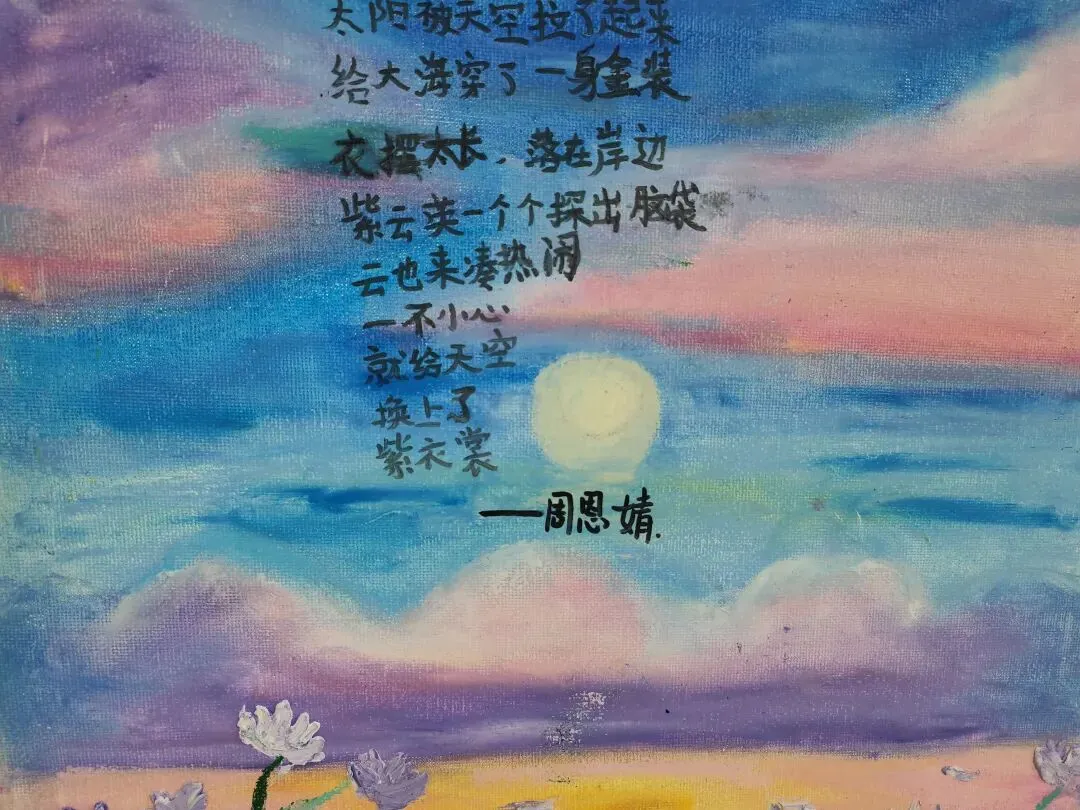 太阳被天空拉了起来
给大海穿了一身金装
衣摆太长，落在岸边
紫云英一个个探出脑袋
云也来凑热闹
一不小心
就给天空
换上了
紫衣裳
——周恩婧.